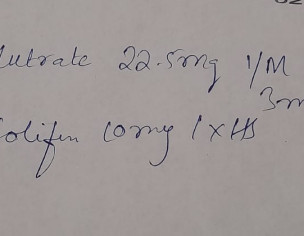 utrate 22.5mg 1/M
3m
olifen 10mg 1 x HS